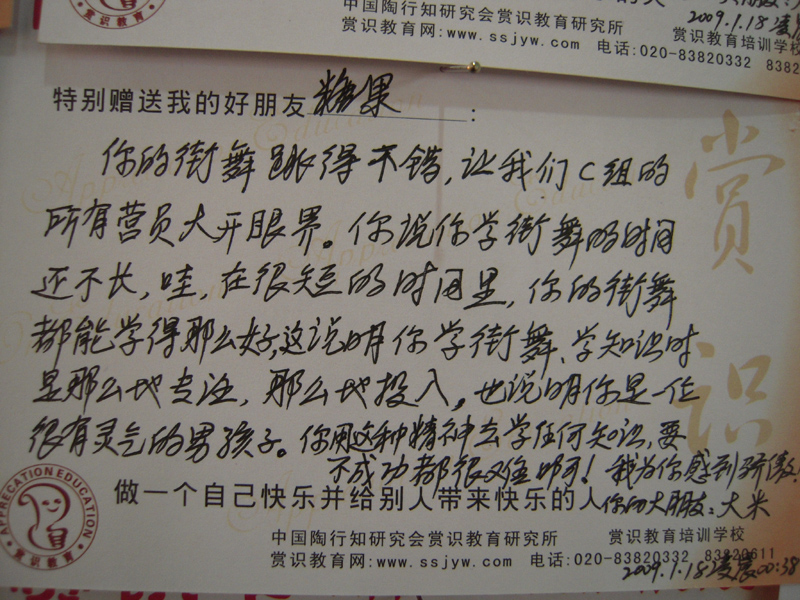 中国陶行知研究会赏识教育研究所
2009.1.18凌
赏识教育网:www.ssjyw.com 电话:020-83820332 8382
赏识教育培训学校
特别赠送我的好朋友糖果:
你的街舞跳得不错,让我们C组的
所有营员大开眼界。你说你学街舞的时间
还不长,哇,在很短的时间里,你的街舞
都能学得那么好,这说明你学街舞、学知识时
是那么地专注,那么地投入。也说明你是一位
很有灵气的男孩子。你用这种精神去学任何知识,要
不成功都很难啊!我为你感到骄傲!
做一个自己快乐并给别人带来快乐的人
你的大朋友:大米
赏识
APPRECATION EDUCATION
赏识教育
中国陶行知研究会赏识教育研究所 赏识教育培训学校
赏识教育网:www.ssjyw.com 电话:020-83820332 83820611
2009.1.18凌晨00:38